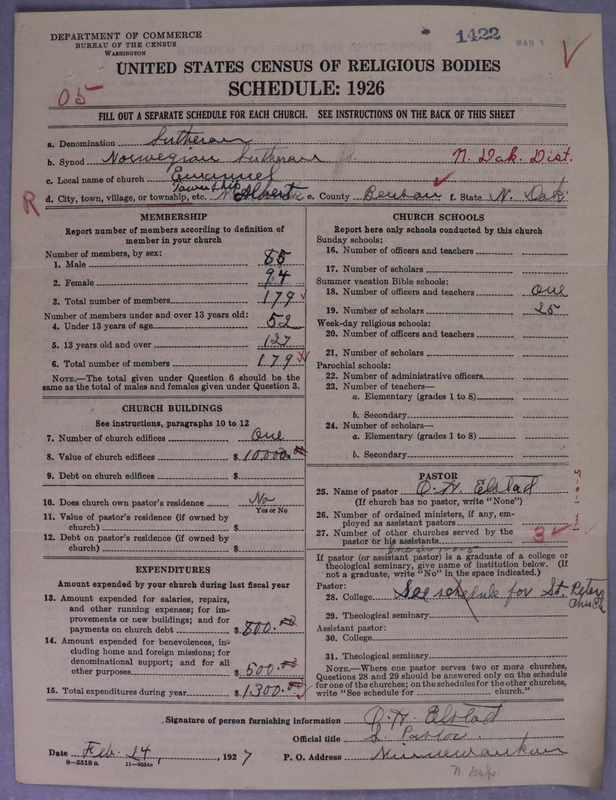 DEPARTMENT OF COMMERCE
BUREAU OF THE CENSUS
WASHINGTON
1422
MAR 1
UNITED STATES CENSUS OF RELIGIOUS BODIES
SCHEDULE: 1926
05
FILL OUT A SEPARATE SCHEDULE FOR EACH CHURCH. SEE INSTRUCTIONS ON THE BACK OF THIS SHEET
a. Denomination Lutheran
b. Synod Norwegian Lutheran N. Dak. Dist.
c. Local name of church Emanuel
R d. City, town, village, or township, etc. Township e. County Benson f. State N. Dak.
MEMBERSHIP
Report number of members according to definition of
member in your church
Number of members, by sex:
1. Male 85
2. Female 94
3. Total number of members 179
Number of members under and over 13 years old:
4. Under 13 years of age 52
5. 13 years old and over 127
6. Total number of members 179
NOTE.—The total given under Question 6 should be
the same as the total of males and females given under Question 3.
CHURCH BUILDINGS
See instructions, paragraphs 10 to 12
7. Number of church edifices One
8. Value of church edifices $ 10000.00
9. Debt on church edifices $
10. Does church own pastor's residence No
Yes or No
11. Value of pastor's residence (if owned by
church) $
12. Debt on pastor's residence (if owned by
church) $
EXPENDITURES
Amount expended by your church during last fiscal year
13. Amount expended for salaries, repairs,
and other running expenses; for im-
provements or new buildings; and for
payments on church debt $ 800.00
14. Amount expended for benevolences, in-
cluding home and foreign missions; for
denominational support; and for all
other purposes $ 500.00
15. Total expenditures during year $ 1300.00
CHURCH SCHOOLS
Report here only schools conducted by this church
Sunday schools:
16. Number of officers and teachers
17. Number of scholars
Summer vacation Bible schools:
18. Number of officers and teachers one
19. Number of scholars 25
Week-day religious schools:
20. Number of officers and teachers
21. Number of scholars
Parochial schools:
22. Number of administrative officers
23. Number of teachers—
a. Elementary (grades 1 to 8)
b. Secondary
24. Number of scholars—
a. Elementary (grades 1 to 8)
b. Secondary
PASTOR
25. Name of pastor O. H. Elstad
(If church has no pastor, write "None")
26. Number of ordained ministers, if any, em-
ployed as assistant pastors
27. Number of other churches served by the
pastor or his assistants 3
If pastor (or assistant pastor) is a graduate of a college or
theological seminary, give name of institution below. (If
not a graduate, write "No" in the space indicated.)
Pastor:
28. College See schedule for St. Peters Church
29. Theological seminary
Assistant pastor:
30. College
31. Theological seminary
NOTE.—Where one pastor serves two or more churches,
Questions 28 and 29 should be answered only on the schedule
for one of the churches; on the schedules for the other churches,
write "See schedule for church."
Signature of person furnishing information O. H. Elstad
Official title Pastor
Date Feb. 24, 1927 P. O. Address Minnewaukan
8-5518a 11-9034a
N. Dak.